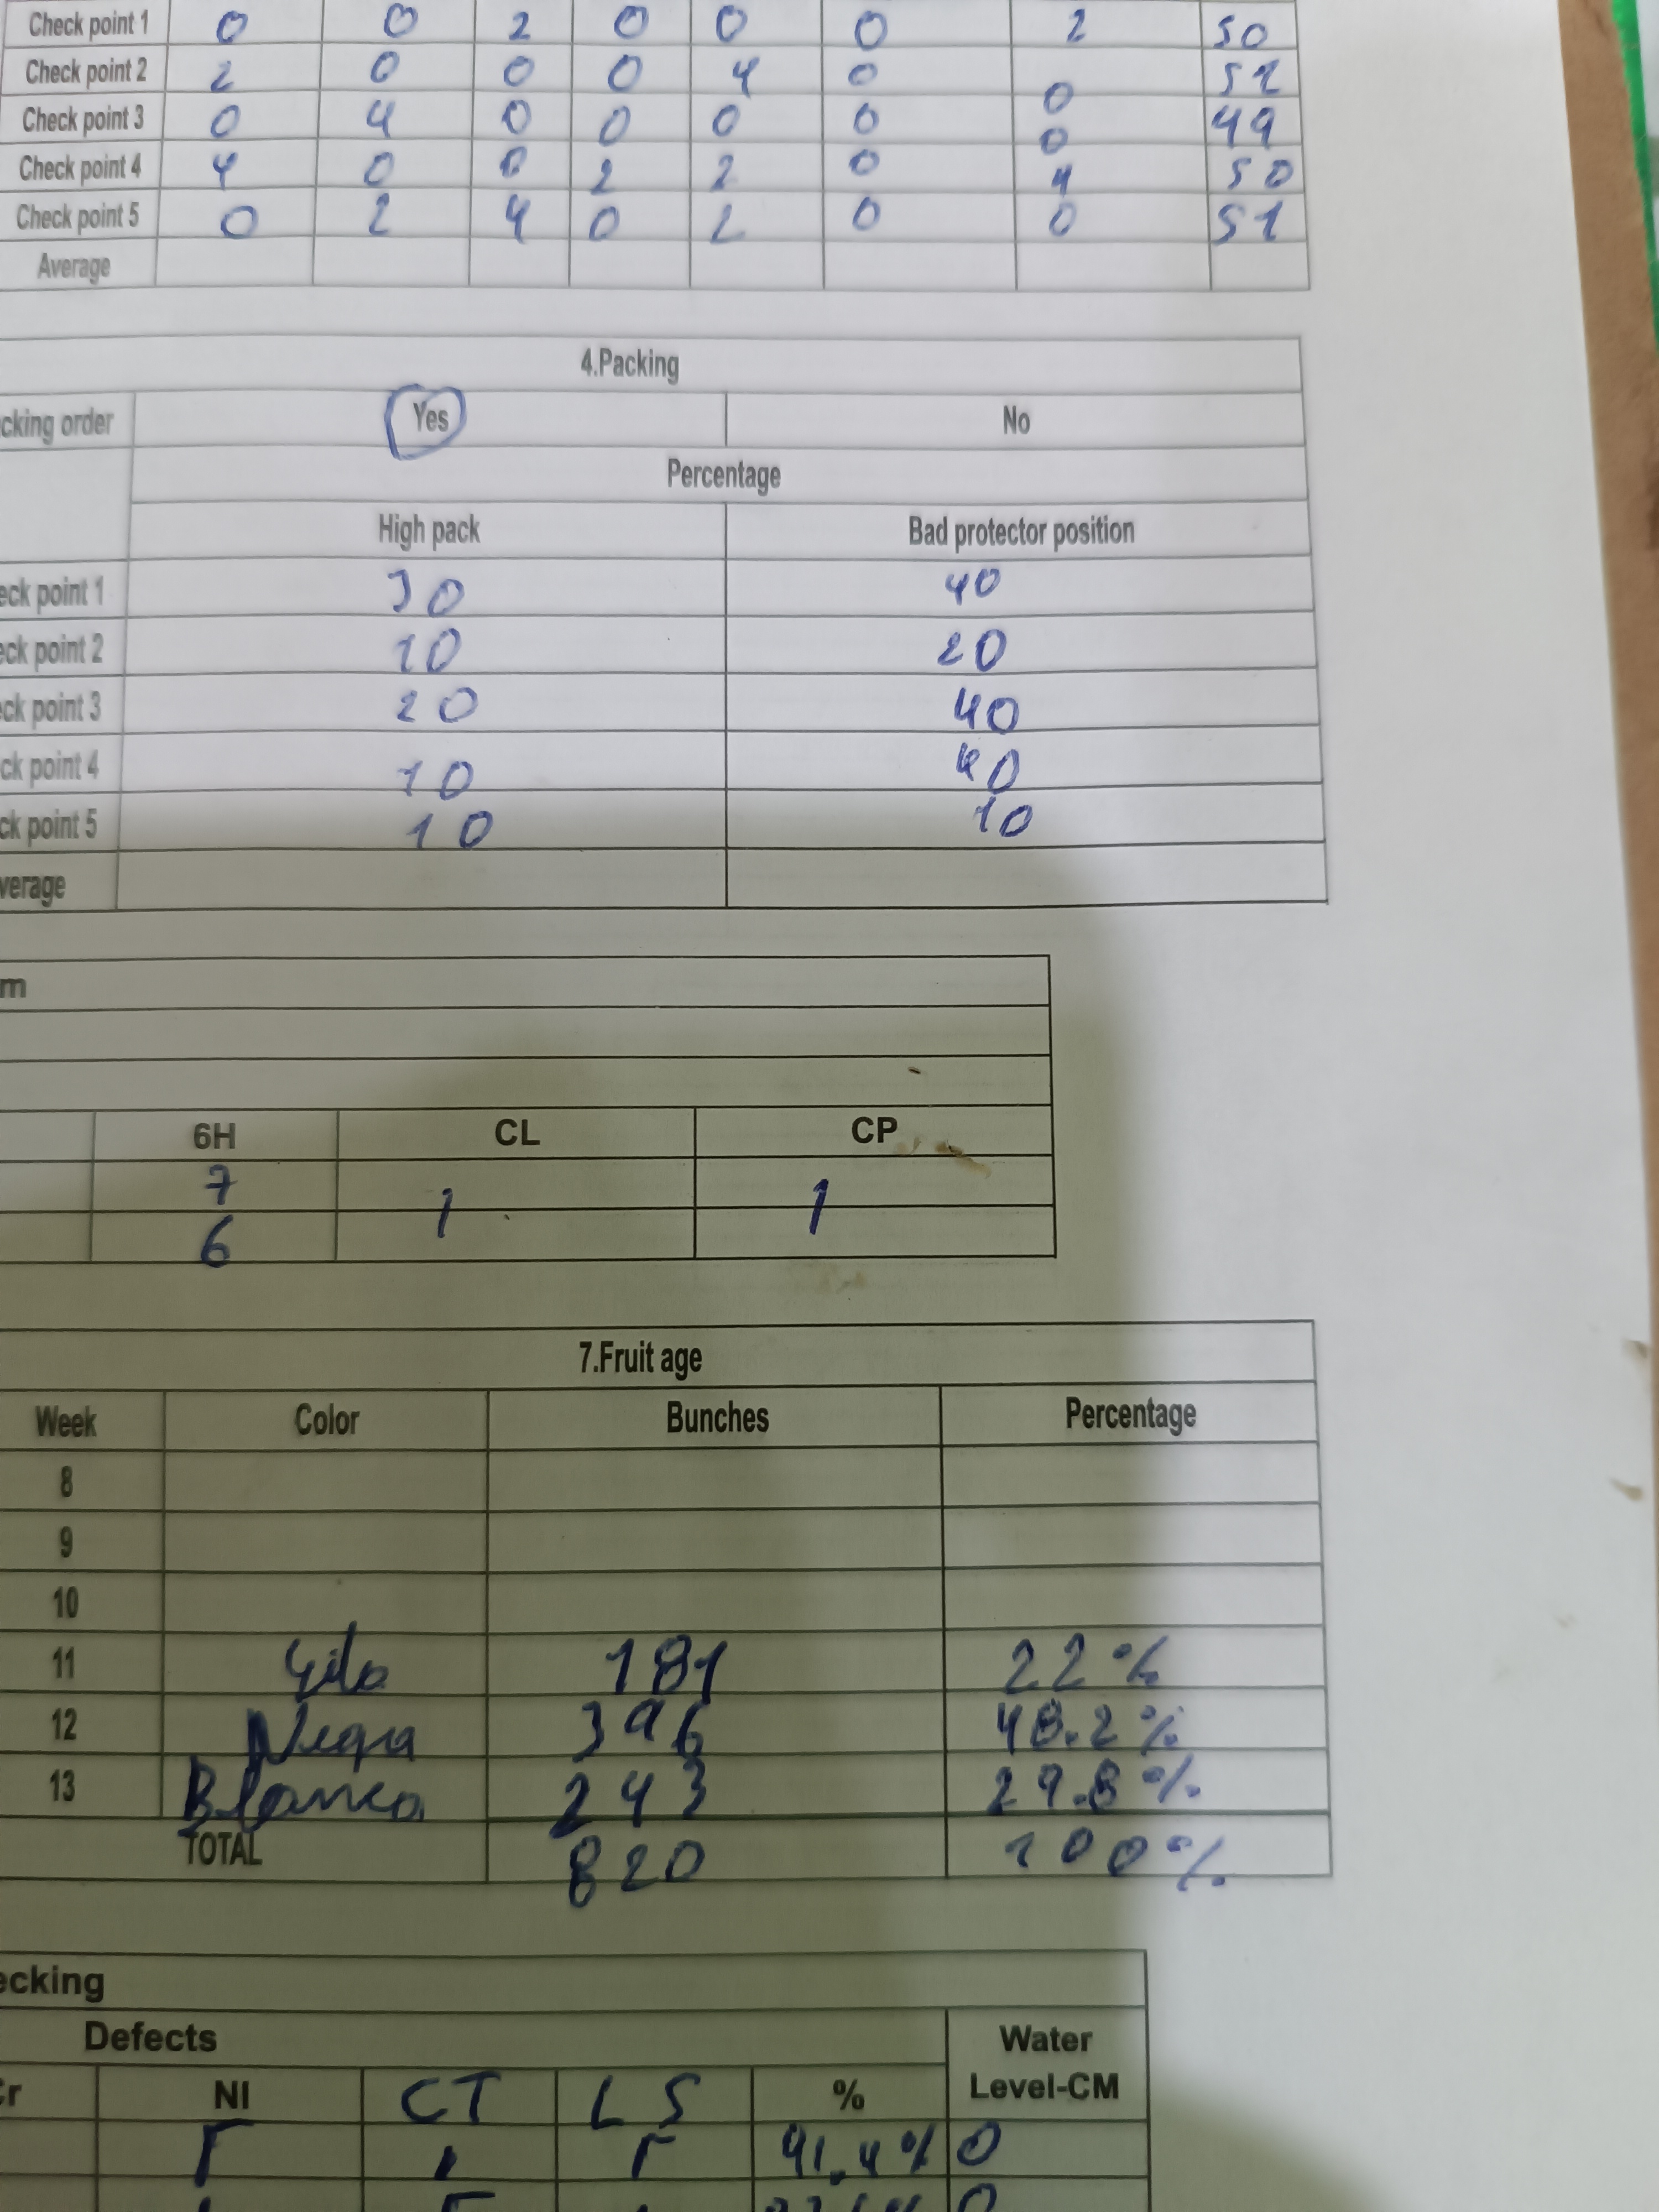 Check point 1 0 0 2 0 0 0 2 50
Check point 2 2 0 0 0 4 0 0 51
Check point 3 0 4 0 0 0 0 0 49
Check point 4 4 0 0 2 2 0 4 50
Check point 5 0 2 4 0 2 0 0 51
Average
4.Packing
cking order Yes No
Percentage
High pack Bad protector position
eck point 1 30 40
eck point 2 10 20
eck point 3 20 40
ck point 4 10 40
ck point 5 10 10
verage
m
6H CL CP
7
1 1
6
7.Fruit age
Week Color Bunches Percentage
8
9
10
11 181 22%
12 Negra 396 48.2%
13 Blanca 243 29.8%
TOTAL 820 100%
ecking
Defects Water
Level-CM
Cr NI CT LS %
91.4% 0
0